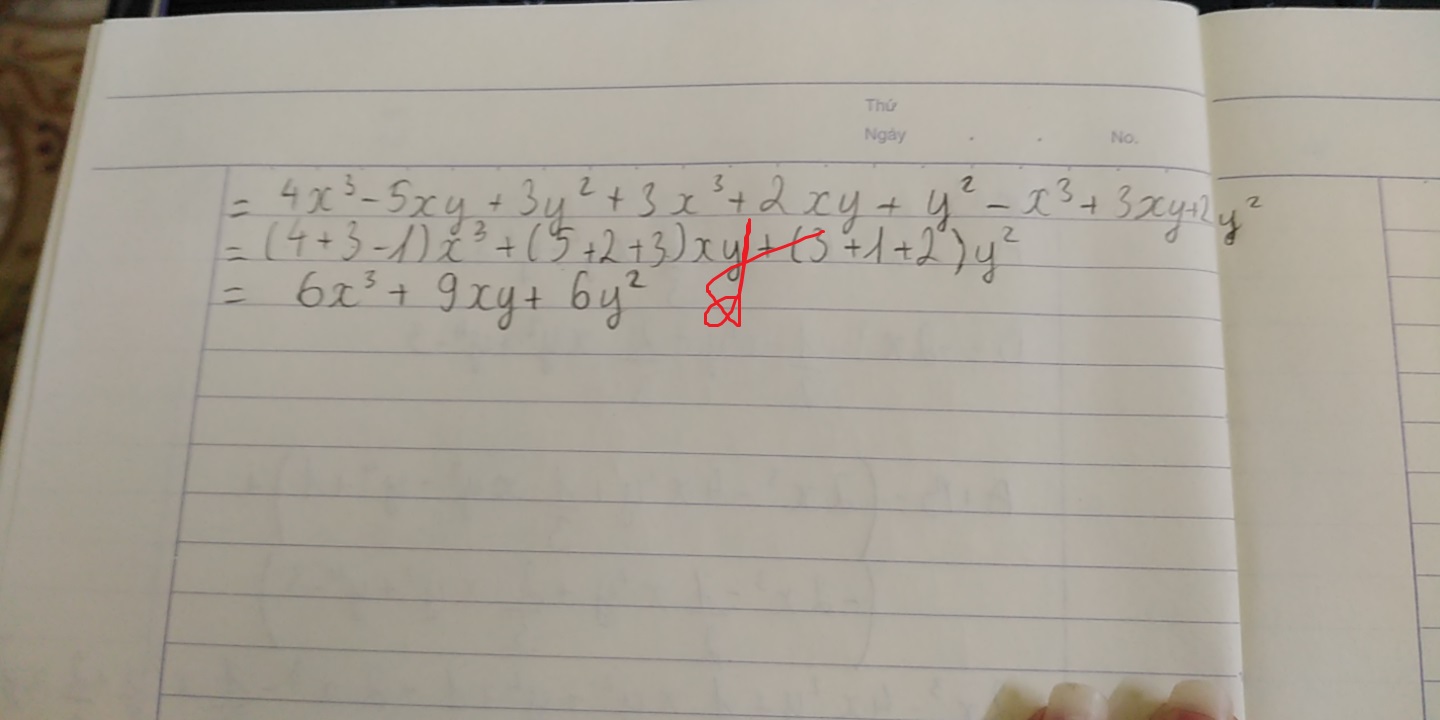 Thứ
Ngày . . No.
= 4x³ - 5xy + 3y² + 3x³ + 2xy + y² - x³ + 3xy + 2y²
= (4+3-1)x³ + (5+2+3)xy + (3+1+2)y²
= 6x³ + 9xy + 6y²